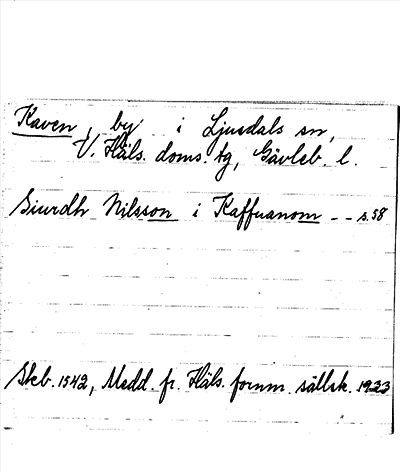 Kaven, by i Ljusdals sn,
V. Häls. doms. tg, Gävleb. l.
Siurdh Nilsson i Kaffuanom -- s. 58
Skb. 1542, Medd. fr. Häls. fornm. sällsk. 1933